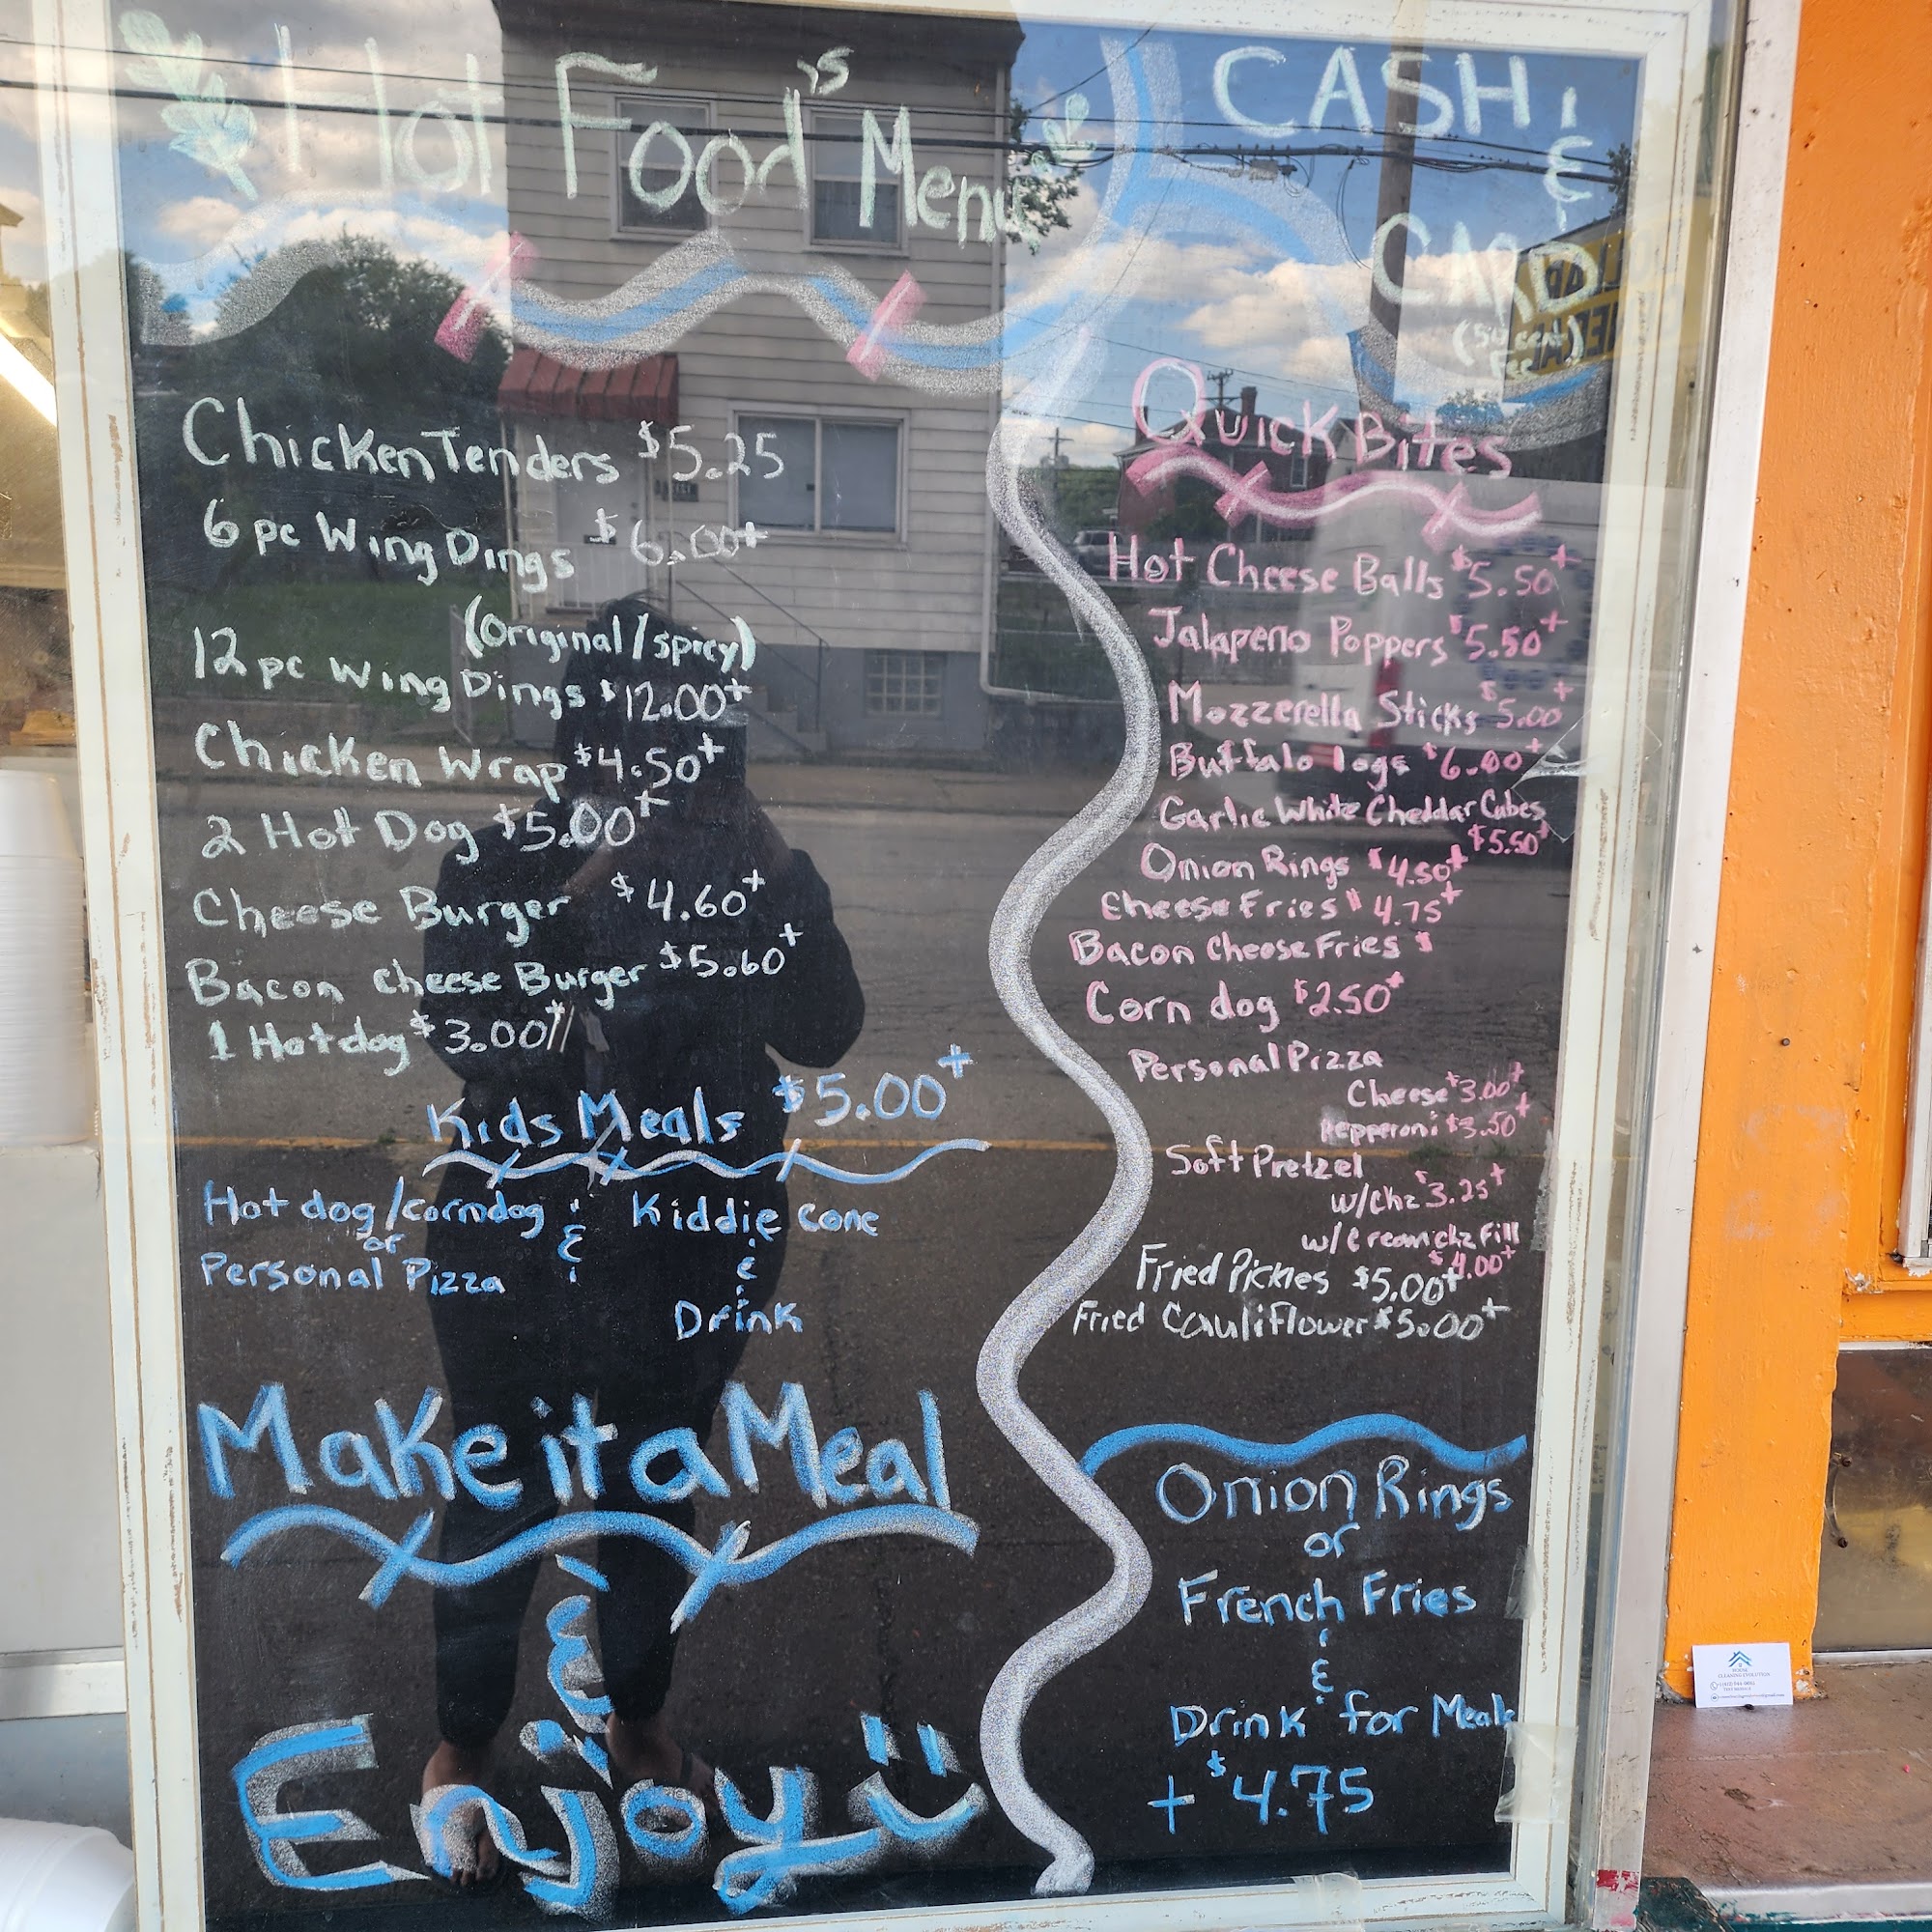 Hot Food's Menu
CASH
&
CARD
(50 cent)
Fee
Chicken Tenders $5.25
6 pc Wing Dings $6.00+
(Original/spicy)
12 pc Wing Dings $12.00+
Chicken Wrap $4.50+
2 Hot Dog $5.00+
Cheese Burger $4.60+
Bacon cheese Burger $5.60+
1 Hotdog $3.00+
Kids Meals $5.00+
Hot dog/corndog & Kiddie cone
or
Personal Pizza
&
Drink
Make it a Meal
&
Enjoy
Quick Bites
Hot Cheese Balls $5.50+
Jalapeno Poppers $5.50+
Mozzerella Sticks $5.00+
Buffalo logs $6.00+
Garlic White Cheddar Cubes
$5.50+
Onion Rings $4.50+
Cheese Fries $4.75+
Bacon Cheese Fries $
Corn dog $2.50+
Personal Pizza
Cheese $3.00+
Pepperoni $3.50+
Soft Pretzel
w/chz $3.25+
w/cream chz fill
$4.00+
Fried Pickles $5.00+
Fried Cauliflower $5.00+
Onion Rings
or
French Fries
&
Drink for Meals
+ $4.75